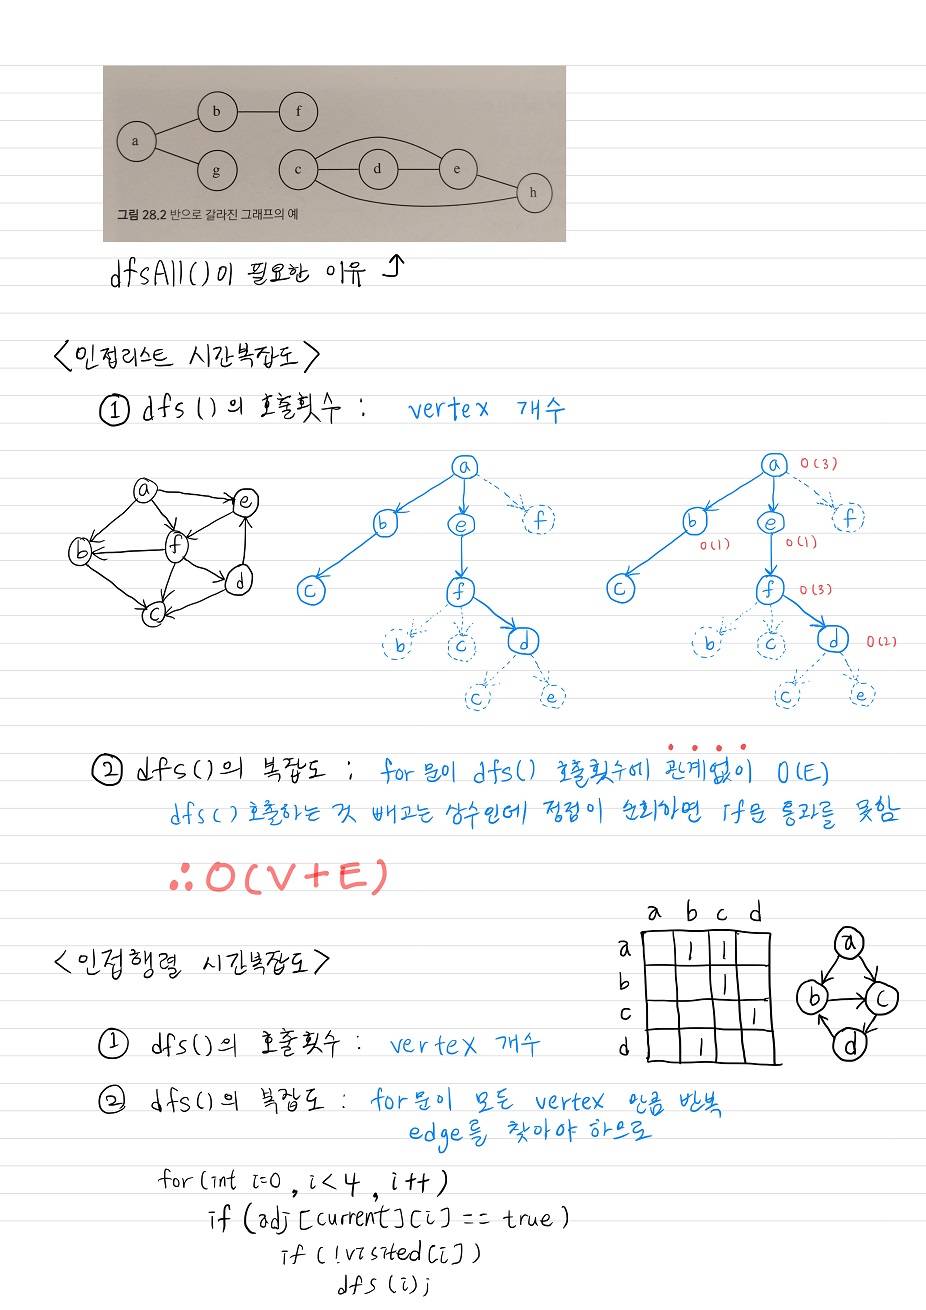 b f
a
g c d e
h
그림 28.2 반으로 갈라진 그래프의 예
dfsAll()이 필요한 이유
<인접리스트 시간복잡도>
① dfs()의 호출횟수 : vertex 개수
a e b f d c
a b e f c f b c d c e
a O(3) b O(1) e O(1) f c f O(3) b c d O(2) c e
② dfs()의 복잡도 ; for문이 dfs() 호출횟수에 관계없이 O(E)
dfs() 호출하는 것 빼고는 상수인데 정점이 순회하면 if문 통과를 못함
∴O(V+E)
<인접행렬 시간복잡도>
a b c d
a 1 1
b 1
c 1
d 1
a
b c
d
① dfs()의 호출횟수 : vertex 개수
② dfs()의 복잡도 : for문이 모든 vertex 만큼 반복
edge를 찾아야 하므로
for(int i=0, i<4, i++)
if (adj[current][i] == true)
if (!visited[i])
dfs(i);